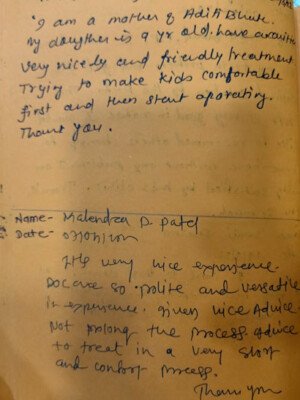 "I am a mother of Aditi Bhute.
My doughter is 9 yr old. have
very nicely and friendly treatment
Trying to make kids comfortable
first and then start oparating.
Thank you.
Name- Mahendra D. Patel
Date-
It's very nice experience.
Doc are so polite and versatile
in experience. given nice Advice.
Not prolong the process. Advice
to treat in a very short
and confort process.
Thank you